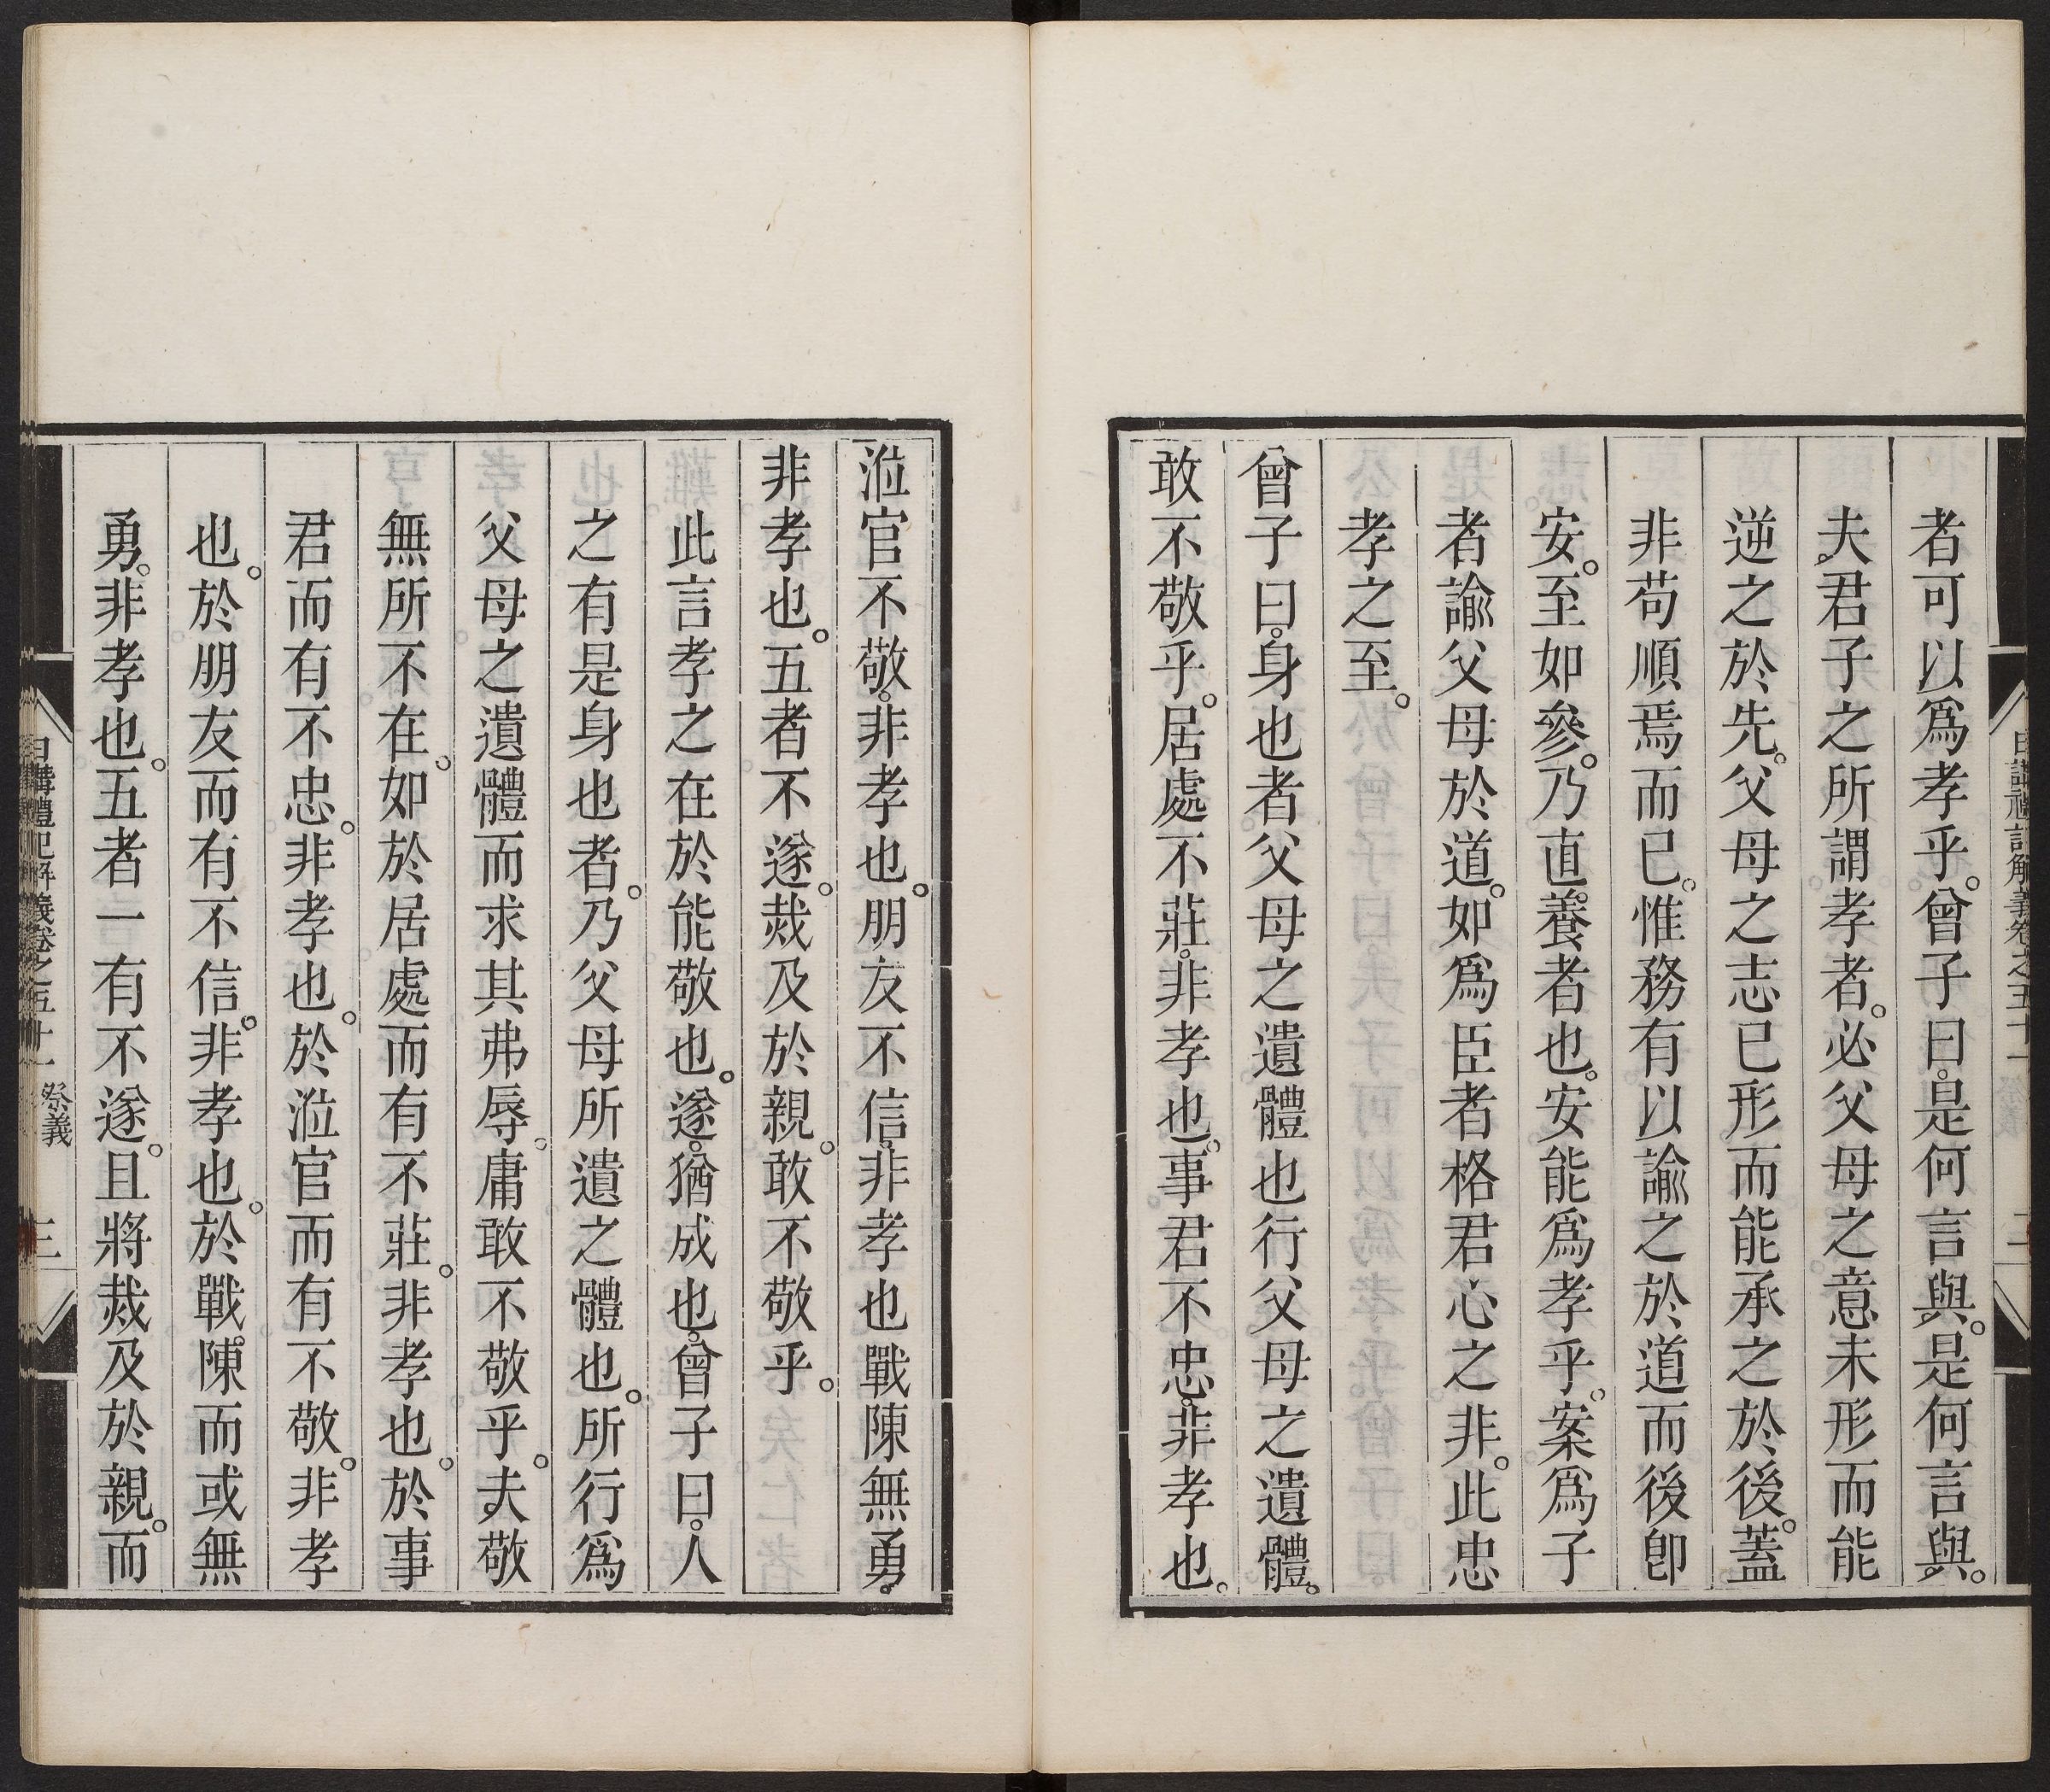 者可以爲孝乎。曾子曰。是何言與。是何言與。
夫。君子之所謂孝者。必父母之意未形而能
逆之於先。父母之志已形而能承之於後。蓋
非苟順焉而已。惟務有以諭之於道而後卽
安。至如參。乃直養者也。安能爲孝乎。案爲子
者諭父母於道。如爲臣者格君心之非。此忠
孝之至。
曾子曰。身也者父母之遺體也行父母之遺體。
敢不敬乎。居處不莊。非孝也。事君不忠。非孝也。
涖官不敬。非孝也。朋友不信。非孝也戰陳無勇。
非孝也。五者不遂。烖及於親。敢不敬乎。
此言孝之在於能敬也。遂。猶成也。曾子曰。人
之有是身也者。乃父母所遺之體也。所行爲
父母之遺體而求其弗辱。庸敢不敬乎。夫敬
無所不在。如於居處而有不莊。非孝也。於事
君而有不忠。非孝也。於涖官而有不敬。非孝
也。於朋友而有不信。非孝也。於戰陳而或無
勇。非孝也。五者一有不遂。且將烖及於親。而
日講禮記解義卷之五十一 祭義 三